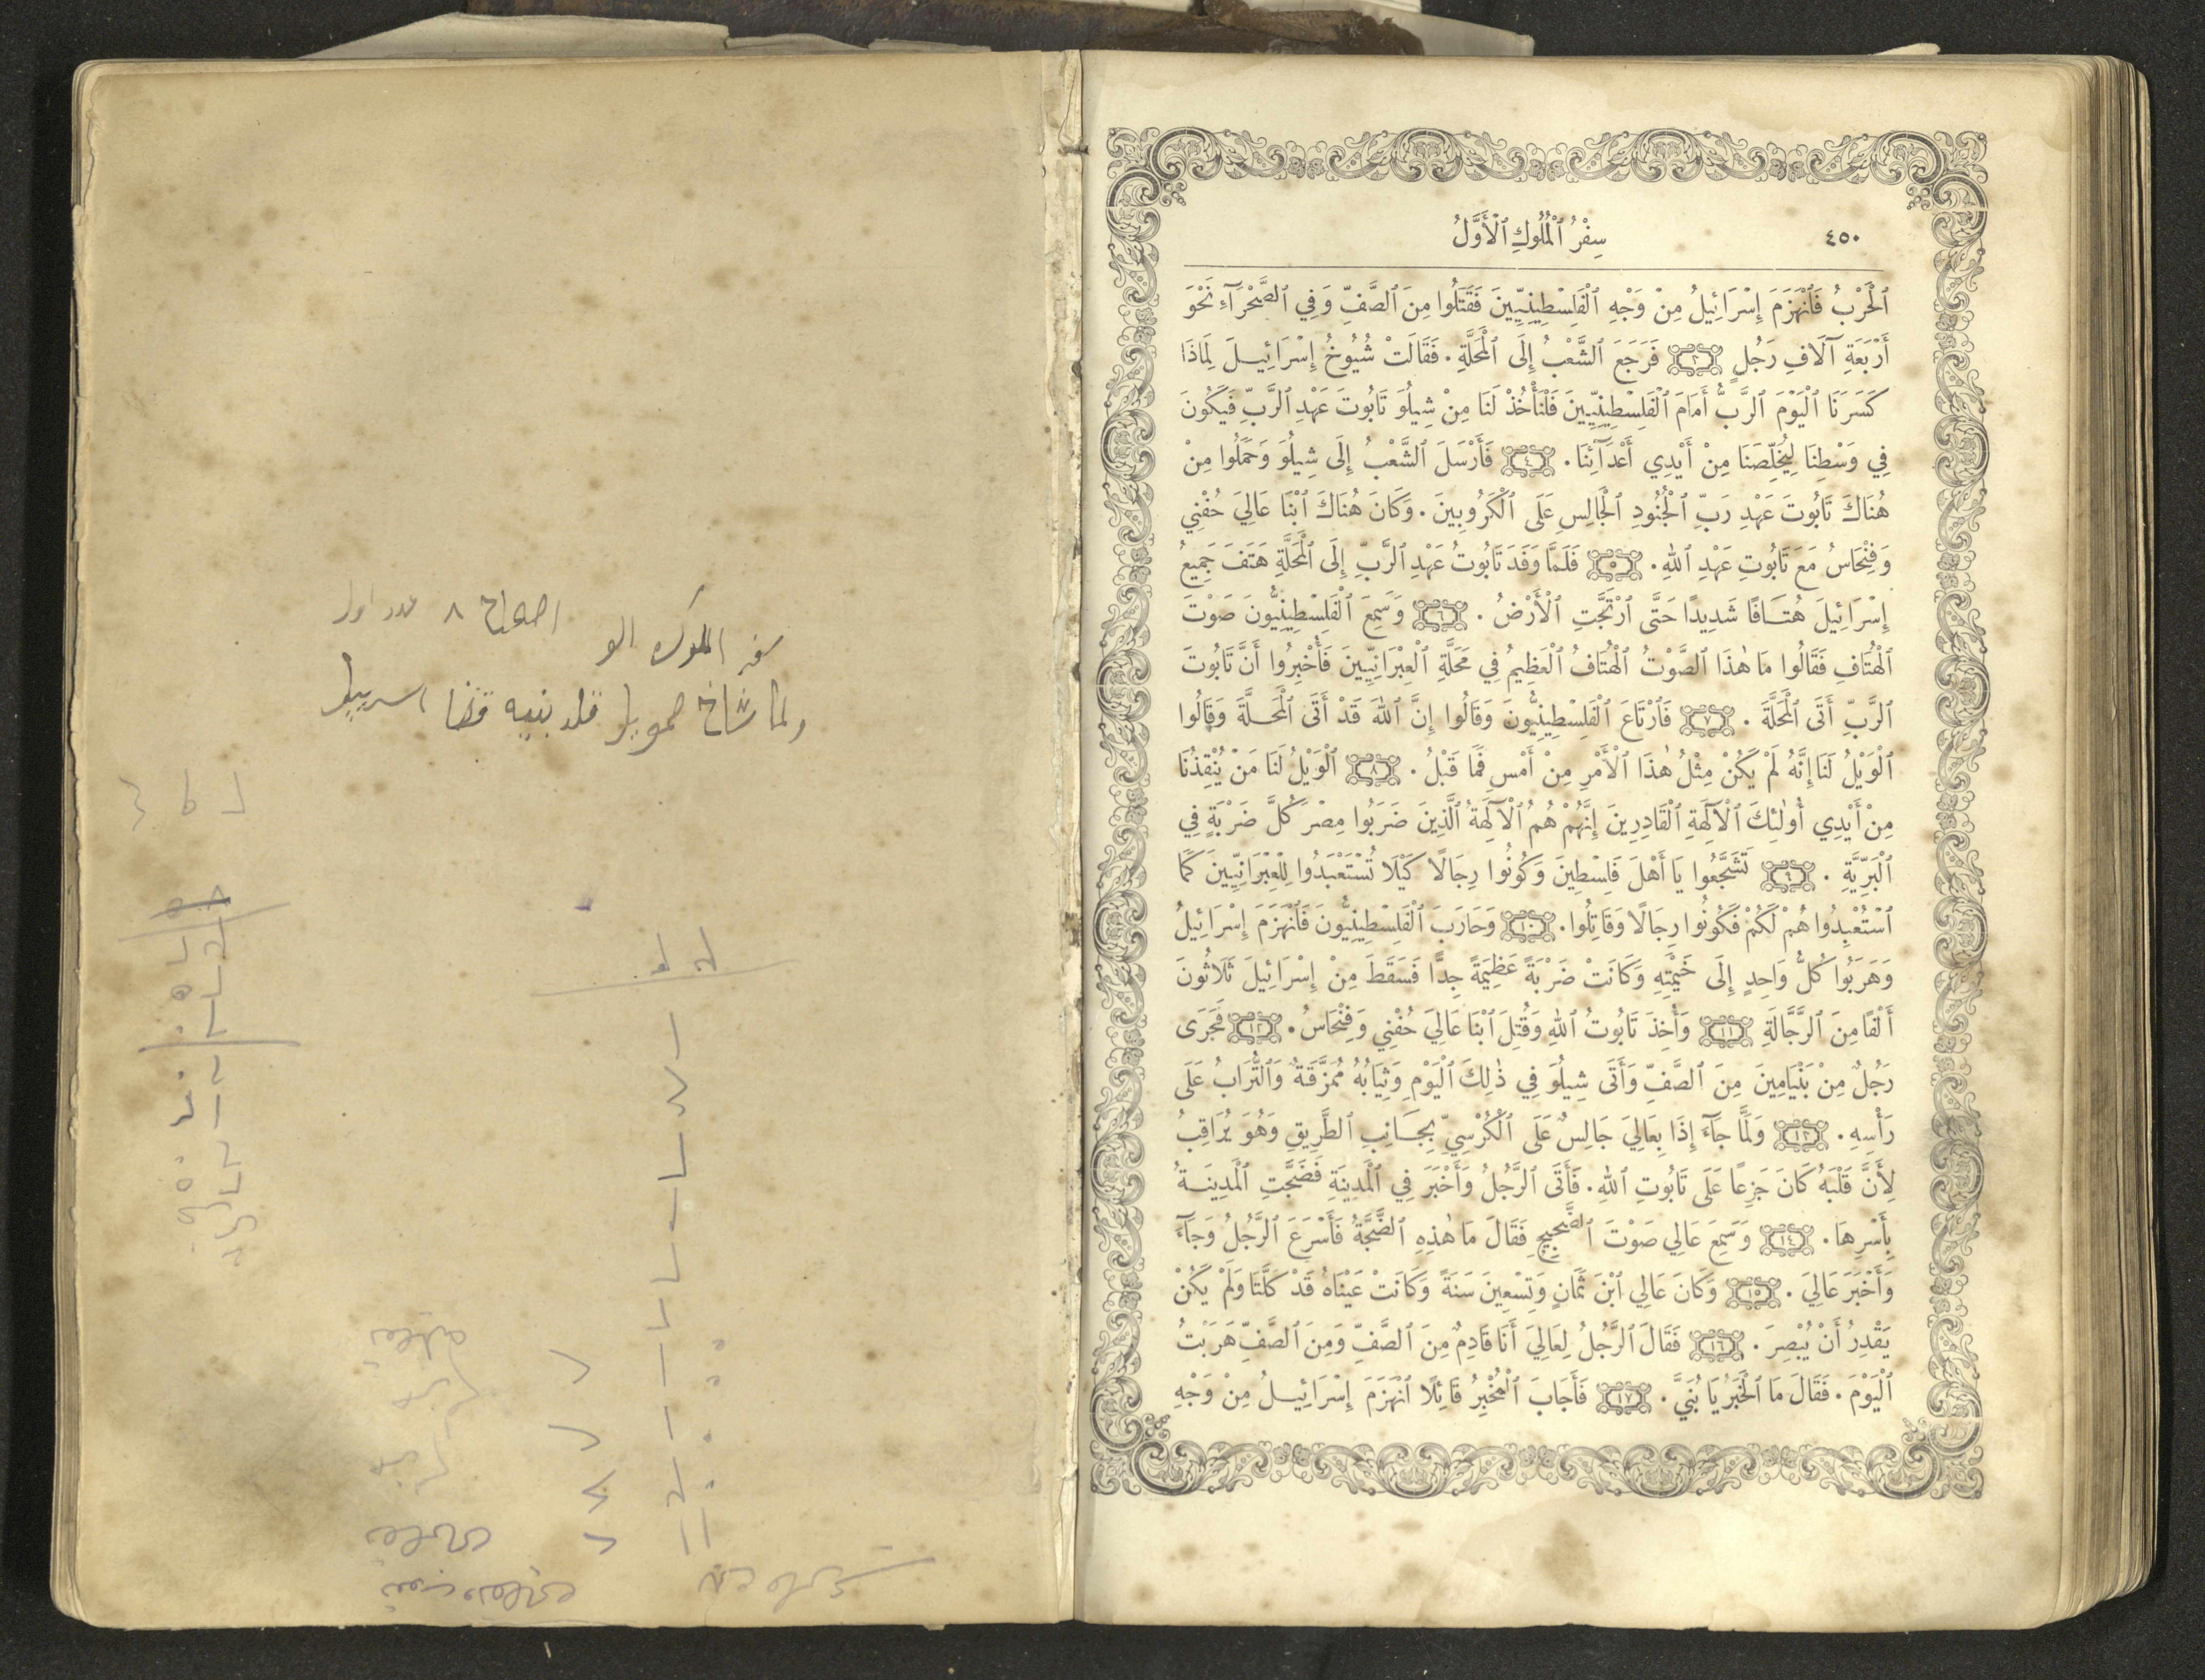 ٤٥٠
سِفْرُ ٱلْمُلُوكِ ٱلْأَوَّلُ
ٱلْحَرْبُ فَٱنْهَزَمَ إِسْرَائِيلُ مِنْ وَجْهِ ٱلْفَلِسْطِينِيِّينَ فَقَتَلُوا مِنَ ٱلصَّفِّ وَفِي ٱلصَّحْرَآءِ نَحْوَ
أَرْبَعَةِ آلَافِ رَجُلٍ ٣ فَرَجَعَ ٱلشَّعْبُ إِلَى ٱلْمَحَلَّةِ. فَقَالَتْ شُيُوخُ إِسْرَائِيلَ لِمَاذَا
كَسَرَنَا ٱلْيَوْمَ ٱلرَّبُّ أَمَامَ ٱلْفَلِسْطِينِيِّينَ فَلْنَأْخُذْ لَنَا مِنْ شِيلُوَ تَابُوتَ عَهْدِ ٱلرَّبِّ فَيَكُونَ
فِي وَسْطِنَا لِيُخَلِّصَنَا مِنْ أَيْدِي أَعْدَآئِنَا. ٤ فَأَرْسَلَ ٱلشَّعْبُ إِلَى شِيلُوَ وَحَمَلُوا مِنْ
هُنَاكَ تَابُوتَ عَهْدِ رَبِّ ٱلْجُنُودِ ٱلْجَالِسِ عَلَى ٱلْكَرُوبِينَ. وَكَانَ هُنَاكَ ٱبْنَا عَالِيَ حُفْنِي
وَفِنْحَاسُ مَعَ تَابُوتِ عَهْدِ ٱللهِ. ٥ فَلَمَّا وَفَدَ تَابُوتُ عَهْدِ ٱلرَّبِّ إِلَى ٱلْمَحَلَّةِ هَتَفَ جَمِيعُ
إِسْرَائِيلَ هُتَافًا شَدِيدًا حَتَّى ٱرْتَجَّتِ ٱلْأَرْضُ. ٦ وَسَمِعَ ٱلْفَلِسْطِينِيُّونَ صَوْتَ
ٱلْهُتَافِ فَقَالُوا مَا هٰذَا ٱلصَّوْتُ ٱلْهُتَافُ ٱلْعَظِيمُ فِي مَحَلَّةِ ٱلْعِبْرَانِيِّينَ فَأُخْبِرُوا أَنَّ تَابُوتَ
ٱلرَّبِّ أَتَى ٱلْمَحَلَّةَ. ٧ فَٱرْتَاعَ ٱلْفَلِسْطِينِيُّونَ وَقَالُوا إِنَّ ٱللهَ قَدْ أَتَى ٱلْمَحَلَّةَ وَقَالُوا
ٱلْوَيْلُ لَنَا إِنَّهُ لَمْ يَكُنْ مِثْلُ هٰذَا ٱلْأَمْرِ مِنْ أَمْسِ فَمَا قَبْلُ. ٨ ٱلْوَيْلُ لَنَا مَنْ يُنْقِذُنَا
مِنْ أَيْدِي أُولٰئِكَ ٱلْآلِهَةِ ٱلْقَادِرِينَ إِنَّهُمْ هُمُ ٱلْآلِهَةُ ٱلَّذِينَ ضَرَبُوا مِصْرَ كُلَّ ضَرْبَةٍ فِي
ٱلْبَرِّيَّةِ. ٩ تَشَجَّعُوا يَا أَهْلَ فَلِسْطِينَ وَكُونُوا رِجَالًا كَيْلَا تُسْتَعْبَدُوا لِلْعِبْرَانِيِّينَ كَمَا
ٱسْتُعْبِدُوا هُمْ لَكُمْ فَكُونُوا رِجَالًا وَقَاتِلُوا. ١٠ وَحَارَبَ ٱلْفَلِسْطِينِيُّونَ فَٱنْهَزَمَ إِسْرَائِيلُ
وَهَرَبُوا كُلُّ وَاحِدٍ إِلَى خَيْمَتِهِ وَكَانَتْ ضَرْبَةً عَظِيمَةً جِدًّا فَسَقَطَ مِنْ إِسْرَائِيلَ ثَلَاثُونَ
أَلْفًا مِنَ ٱلرَّجَّالَةِ ١١ وَأُخِذَ تَابُوتُ ٱللهِ وَقُتِلَ ٱبْنَا عَالِيَ حُفْنِي وَفِنْحَاسُ. ١٢ فَجَرَى
رَجُلٌ مِنْ بَنْيَامِينَ مِنَ ٱلصَّفِّ وَأَتَى شِيلُوَ فِي ذٰلِكَ ٱلْيَوْمِ وَثِيَابُهُ مُمَزَّقَةٌ وَٱلتُّرَابُ عَلَى
رَأْسِهِ. ١٣ وَلَمَّا جَآءَ إِذَا بِعَالِيَ جَالِسٌ عَلَى ٱلْكُرْسِيِّ بِجَانِبِ ٱلطَّرِيقِ وَهُوَ يُرَاقِبُ
لِأَنَّ قَلْبَهُ كَانَ جَزِعًا عَلَى تَابُوتِ ٱللهِ. فَأَتَى ٱلرَّجُلُ وَأَخْبَرَ فِي ٱلْمَدِينَةِ فَضَجَّتِ ٱلْمَدِينَةُ
بِأَسْرِهَا. ١٤ وَسَمِعَ عَالِي صَوْتَ ٱلضَّجِيجِ فَقَالَ مَا هٰذِهِ ٱلضَّجَّةُ فَأَسْرَعَ ٱلرَّجُلُ وَجَآءَ
وَأَخْبَرَ عَالِيَ. ١٥ وَكَانَ عَالِي ٱبْنَ ثَمَانٍ وَتِسْعِينَ سَنَةً وَكَانَتْ عَيْنَاهُ قَدْ كَلَّتَا وَلَمْ يَكُنْ
يَقْدِرُ أَنْ يُبْصِرَ. ١٦ فَقَالَ ٱلرَّجُلُ لِعَالِيَ أَنَا قَادِمٌ مِنَ ٱلصَّفِّ وَمِنَ ٱلصَّفِّ هَرَبْتُ
ٱلْيَوْمَ. فَقَالَ مَا ٱلْخَبَرُ يَا بُنَيَّ. ١٧ فَأَجَابَ ٱلْمُخْبِرُ قَائِلًا ٱنْهَزَمَ إِسْرَائِيلُ مِنْ وَجْهِ
سفر الملوك الو اصحاح ٨ عدد اول
ولما شاخ صمويل قلد بنيه قضا